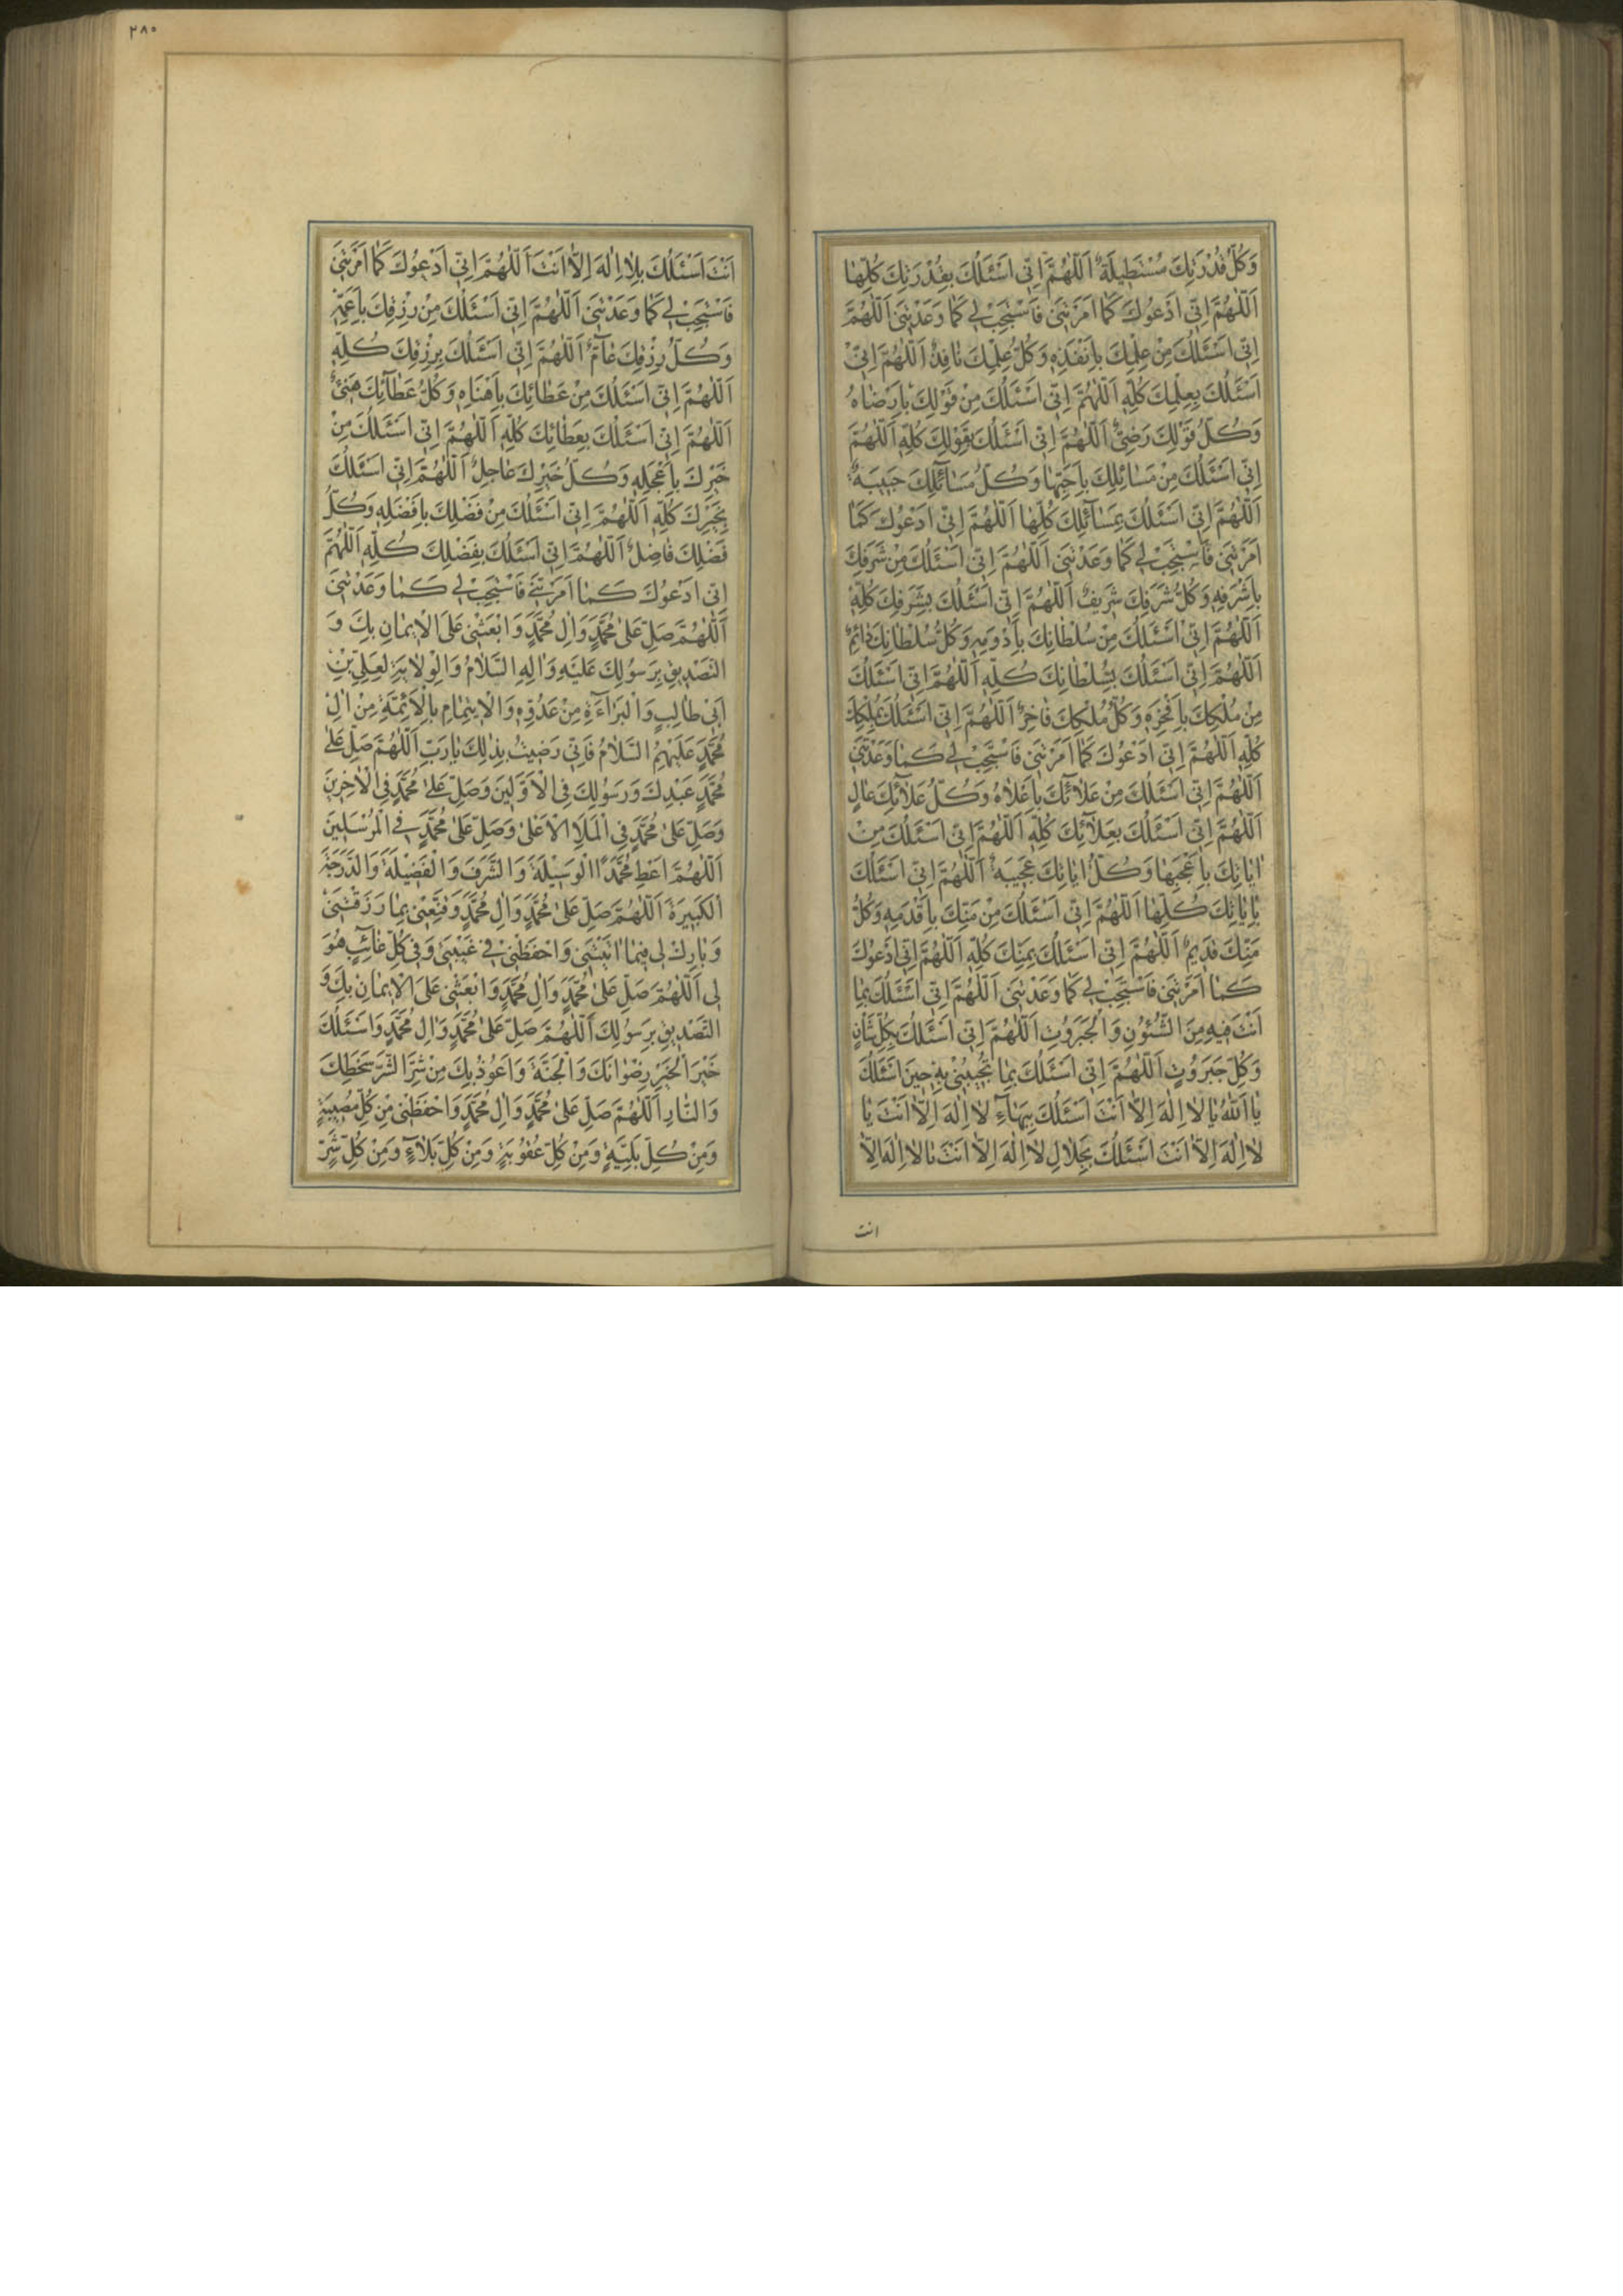 وَكُلُّ قُدْرَتِكَ مُسْتَطِيلَةٌ اَللّٰهُمَّ اِنّى اَسْئَلُكَ بِقُدْرَتِكَ كُلِّهٰا
اَللّٰهُمَّ اِنّى اَدْعُوكَ كَمٰا اَمَرْتَنى فَاسْتَجِبْ لى كَمٰا وَعَدْتَنى اَللّٰهُمَّ
اِنّى اَسْئَلُكَ مِنْ عِلْمِكَ بِاَنْفَذِهِ وَكُلُّ عِلْمِكَ نٰافِذٌ اَللّٰهُمَّ اِنّى
اَسْئَلُكَ بِعِلْمِكَ كُلِّهِ اَللّٰهُمَّ اِنّى اَسْئَلُكَ مِنْ قَوْلِكَ بِاَرْضٰاهُ
وَكُلُّ قَوْلِكَ رَضِىٌّ اَللّٰهُمَّ اِنّى اَسْئَلُكَ بِقَوْلِكَ كُلِّهِ اَللّٰهُمَّ
اِنّى اَسْئَلُكَ مِنْ مَسٰائِلِكَ بِاَحَبِّهٰا وَكُلُّ مَسٰآئِلِكَ حَبيبَةٌ
اَللّٰهُمَّ اِنّى اَسْئَلُكَ بِمَسٰآئِلِكَ كُلِّهٰا اَللّٰهُمَّ اِنّى اَدْعُوكَ كَمٰا
اَمَرْتَنى فَاسْتَجِبْ لى كَمٰا وَعَدْتَنى اَللّٰهُمَّ اِنّى اَسْئَلُكَ مِنْ شَرَفِكَ
بِاَشْرَفِهِ وَكُلُّ شَرَفِكَ شَريفٌ اَللّٰهُمَّ اِنّى اَسْئَلُكَ بِشَرَفِكَ كُلِّهِ
اَللّٰهُمَّ اِنّى اَسْئَلُكَ مِنْ سُلْطٰانِكَ بِاَدْوَمِهِ وَكُلُّ سُلْطٰانِكَ دٰائِمٌ
اَللّٰهُمَّ اِنّى اَسْئَلُكَ بِسُلْطٰانِكَ كُلِّهِ اَللّٰهُمَّ اِنّى اَسْئَلُكَ
مِنْ مُلْكِكَ بِاَفْخَرِهِ وَكُلُّ مُلْكِكَ فٰاخِرٌ اَللّٰهُمَّ اِنّى اَسْئَلُكَ بِمُلْكِكَ
كُلِّهِ اَللّٰهُمَّ اِنّى اَدْعُوكَ كَمٰا اَمَرْتَنى فَاسْتَجِبْ لى كَمٰا وَعَدْتَنى
اَللّٰهُمَّ اِنّى اَسْئَلُكَ مِنْ عَلٰآئِكَ بِاَعْلاٰهُ وَكُلُّ عَلٰآئِكَ عٰالٍ
اَللّٰهُمَّ اِنّى اَسْئَلُكَ بِعَلٰآئِكَ كُلِّهِ اَللّٰهُمَّ اِنّى اَسْئَلُكَ مِنْ
اٰيٰاتِكَ بِاَعْجَبِهٰا وَكُلُّ اٰيٰاتِكَ عَجيبَةٌ اَللّٰهُمَّ اِنّى اَسْئَلُكَ
بِاٰيٰاتِكَ كُلِّهٰا اَللّٰهُمَّ اِنّى اَسْئَلُكَ مِنْ مَنِّكَ بِاَقْدَمِهِ وَكُلُّ
مَنِّكَ قَديمٌ اَللّٰهُمَّ اِنّى اَسْئَلُكَ بِمَنِّكَ كُلِّهِ اَللّٰهُمَّ اِنّى اَدْعُوكَ
كَمٰا اَمَرْتَنى فَاسْتَجِبْ لى كَمٰا وَعَدْتَنى اَللّٰهُمَّ اِنّى اَسْئَلُكَ بِمٰا
اَنْتَ فيهِ مِنَ الشُّئُونِ وَالْجَبَرُوتِ اَللّٰهُمَّ اِنّى اَسْئَلُكَ بِكُلِّ شَأْنٍ
وَكُلِّ جَبَرُوتٍ اَللّٰهُمَّ اِنّى اَسْئَلُكَ بِمٰا تُجيبُنى بِهِ حينَ اَسْئَلُكَ
يٰا اَللّٰهُ يٰا لاٰ اِلٰهَ اِلاّٰ اَنْتَ اَسْئَلُكَ بِبَهٰآءِ لاٰ اِلٰهَ اِلاّٰ اَنْتَ يٰا
لاٰ اِلٰهَ اِلاّٰ اَنْتَ اَسْئَلُكَ بِجَلاٰلِ لاٰ اِلٰهَ اِلاّٰ اَنْتَ يٰا لاٰ اِلٰهَ اِلاّٰ
انت
٢٨٠
اَنْتَ اَسْئَلُكَ بِلاٰ اِلٰهَ اِلاّٰ اَنْتَ اَللّٰهُمَّ اِنّى اَدْعُوكَ كَمٰا اَمَرْتَنى
فَاسْتَجِبْ لى كَمٰا وَعَدْتَنى اَللّٰهُمَّ اِنّى اَسْئَلُكَ مِنْ رِزْقِكَ بِاَعَمِّهِ
وَكُلُّ رِزْقِكَ عٰآمٌّ اَللّٰهُمَّ اِنّى اَسْئَلُكَ بِرِزْقِكَ كُلِّهِ
اَللّٰهُمَّ اِنّى اَسْئَلُكَ مِنْ عَطٰائِكَ بِاَهْنَاهِ وَكُلُّ عَطٰآئِكَ هَنىءٌ
اَللّٰهُمَّ اِنّى اَسْئَلُكَ بِعَطٰائِكَ كُلِّهِ اَللّٰهُمَّ اِنّى اَسْئَلُكَ مِنْ
خَيْرِكَ بِاَعْجَلِهِ وَكُلُّ خَيْرِكَ عٰاجِلٌ اَللّٰهُمَّ اِنّى اَسْئَلُكَ
بِخَيْرِكَ كُلِّهِ اَللّٰهُمَّ اِنّى اَسْئَلُكَ مِنْ فَضْلِكَ بِاَفْضَلِهِ وَكُلُّ
فَضْلِكَ فٰاضِلٌ اَللّٰهُمَّ اِنّى اَسْئَلُكَ بِفَضْلِكَ كُلِّهِ اَللّٰهُمَّ
اِنّى اَدْعُوكَ كَمٰا اَمَرْتَنى فَاسْتَجِبْ لى كَمٰا وَعَدْتَنى
اَللّٰهُمَّ صَلِّ عَلىٰ مُحَمَّدٍ وَاٰلِ مُحَمَّدٍ وَابْعَثْنى عَلَى الْايمٰانِ بِكَ وَ
التَّصْديقِ بِرَسُولِكَ عَلَيْهِ وَاٰلِهِ السَّلاٰمُ وَالْوِلاٰيَةِ لِعَلِىِّ بْنِ
اَبى طٰالِبٍ وَالْبَرٰآءَةِ مِنْ عَدُوِّهِ وَالْايتِمٰامِ بِالْاَئِمَّةِ مِنْ اٰلِ
مُحَمَّدٍ عَلَيْهِمُ السَّلاٰمُ فَاِنّى رَضيتُ بِذٰلِكَ يٰا رَبِّ اَللّٰهُمَّ صَلِّ عَلىٰ
مُحَمَّدٍ عَبْدِكَ وَرَسُولِكَ فِى الْاَوَّلينَ وَصَلِّ عَلىٰ مُحَمَّدٍ فِى الْاٰخِرينَ
وَصَلِّ عَلىٰ مُحَمَّدٍ فِى الْمَلَاِ الْاَعْلىٰ وَصَلِّ عَلىٰ مُحَمَّدٍ فِى الْمُرْسَلينَ
اَللّٰهُمَّ اَعْطِ مُحَمَّدًا الْوَسيلَةَ وَالشَّرَفَ وَالْفَضيلَةَ وَالدَّرَجَةَ
الْكَبيرَةَ اَللّٰهُمَّ صَلِّ عَلىٰ مُحَمَّدٍ وَاٰلِ مُحَمَّدٍ وَقَنِّعْنى بِمٰا رَزَقْتَنى
وَبٰارِكْ لى فيمٰا اٰتَيْتَنى وَاحْفَظْنى فى غَيْبَتى وَفى كُلِّ غٰائِبٍ هُوَ
لى اَللّٰهُمَّ صَلِّ عَلىٰ مُحَمَّدٍ وَاٰلِ مُحَمَّدٍ وَابْعَثْنى عَلَى الْايمٰانِ بِكَ وَ
التَّصْديقِ بِرَسُولِكَ اَللّٰهُمَّ صَلِّ عَلىٰ مُحَمَّدٍ وَاٰلِ مُحَمَّدٍ وَاَسْئَلُكَ
خَيْرَ الْخَيْرِ رِضْوٰانَكَ وَالْجَنَّةَ وَاَعُوذُ بِكَ مِنْ شَرِّ الشَّرِّ سَخَطِكَ
وَالنّٰارِ اَللّٰهُمَّ صَلِّ عَلىٰ مُحَمَّدٍ وَاٰلِ مُحَمَّدٍ وَاحْفَظْنى مِنْ كُلِّ مُصيبَةٍ
وَمِنْ كُلِّ بَلِيَّةٍ وَمِنْ كُلِّ عُقُوبَةٍ وَمِنْ كُلِّ بَلاٰءٍ وَمِنْ كُلِّ شَرٍّ